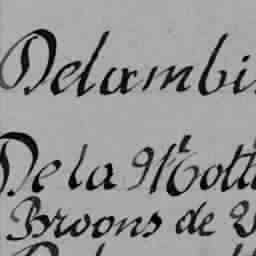 Delambi
De la Mott
Broons de V